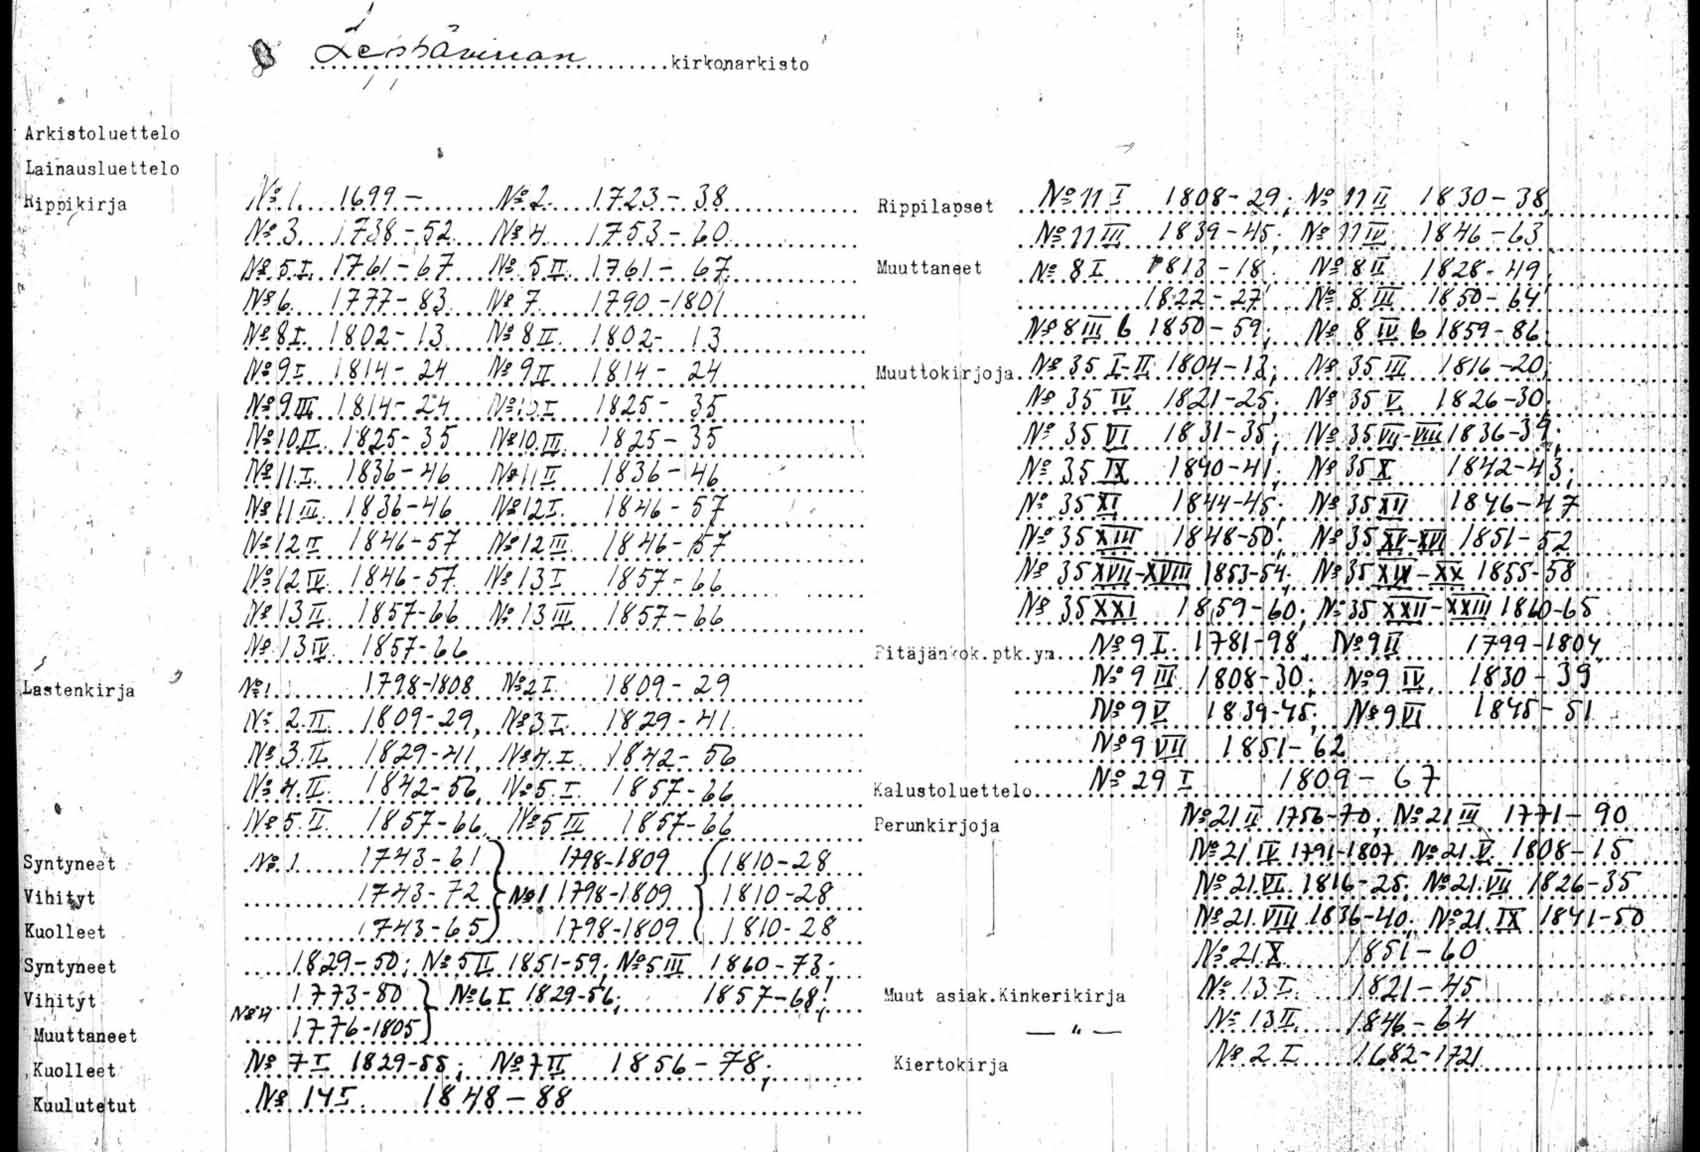 Leppävirran kirkonarkisto
Arkistoluettelo
Lainausluettelo
Rippikirja № 1. 1699 – № 2. 1723 – 38
№ 3. 1738 – 52 № 4. 1753 – 60
№ 5 I. 1761 – 67 № 5 II. 1761 – 67
№ 6. 1777 – 83 № 7. 1790 – 1801
№ 8 I. 1802 – 13 № 8 II. 1802 – 13
№ 9 I 1814 – 24 № 9 II 1814 – 24
№ 9 III 1814 – 24 № 10 I 1825 – 35
№ 10 II. 1825 – 35 № 10 III. 1825 – 35
№ 11 I. 1836 – 46 № 11 II 1836 – 46
№ 11 III. 1836 – 46 № 12 I. 1846 – 57
№ 12 II 1846 – 57 № 12 III 1846 – 57
№ 12 IV. 1846 – 57. № 13 I 1857 – 66
№ 13 II 1857 – 66 № 13 III 1857 – 66
№ 13 IV 1857 – 66
Lastenkirja № 1 1798-1808 № 2 I. 1809 – 29
№ 2. II. 1809 – 29, № 3 I. 1829 – 41
№ 3. II. 1829 – 41 № 4. I 1842 – 56
№ 4. II. 1842 – 56 № 5. I. 1857 – 66
№ 5. II. 1857 – 66 № 5 III 1857 – 66
Syntyneet № 1. 1743 – 61 1798-1809 1810 – 28
Vihityt 1743 – 72 № 1 1798-1809 1810 – 28
Kuolleet 1743 – 65 1798-1809 1810 – 28
Syntyneet 1829 – 50; № 5 II 1851 – 59; № 5 III 1860 – 73;
Vihityt 1773 – 80 № 6 I 1829 – 56; 1857 – 68;
Muuttaneet № 4 1776-1805
Kuolleet № 7 I 1829-55; № 7 II 1856 – 78;
Kuulutetut № 14 I. 1848 – 88
Rippilapset № 11 I 1808 – 29; № 11 II 1830 – 38
№ 11 III 1839 – 45; № 11 IV 1846 – 63
Muuttaneet № 8 I 1813 – 18 № 8 II 1828 – 49
1822 – 27 № 8 III 1850 – 64
№ 8 III b 1850 – 59; № 8 IV b 1859 – 86
Muuttokirjoja № 35 I-II 1804 – 13; № 35 III 1816 – 20;
№ 35 IV 1821 – 25; № 35 V 1826 – 30;
№ 35 VI 1831 – 35; № 35 VII-VIII 1836 – 39;
№ 35 IX 1840 – 41; № 35 X 1842 – 43;
№ 35 XI 1844-45; № 35 XII 1846 – 47
№ 35 XIII 1848-50; № 35 XV-XVI 1851 – 52
№ 35 XVII-XVIII 1853-54; № 35 XIX – XX 1855-58
№ 35 XXI 1859 – 60; № 35 XXII – XXIII 1860-65
Pitäjänkok.ptk.ym. № 9 I. 1781 – 98 № 9 II 1799 – 1804
№ 9 III 1808 – 30; № 9 IV. 1830 – 39
№ 9 V 1839-45; № 9 VI 1845 – 51
№ 9 VII 1851 – 62
Kalustoluettelo № 29 I 1809 – 67
Perunkirjoja № 21 II 1756 – 70; № 21 III 1771 – 90
№ 21 IV 1791-1807 № 21 V 1808 – 15
№ 21. VI. 1816 – 25; № 21. VII 1826 – 35
№ 21. VIII 1836 – 40; № 21. IX 1841 – 50
№ 21 X 1851 – 60
Muut asiak.Kinkerikirja № 13 I. 1821 – 45
— " — № 13 II 1846 – 64
Kiertokirja № 2. I. 1682 – 1721